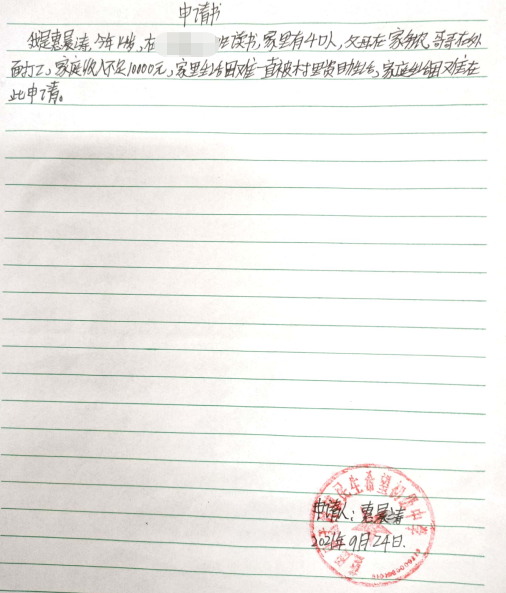 申请书
我是惠晨清,今年14岁,在 读书,家里有4口人,父母在家务农,哥哥在外
面打工,家庭收入不足10000元,家里生活困难一直被村里资助生活,家庭生活困难在
此申请。
民生希望初级中学
申请人:惠晨清
2021年9月24日.